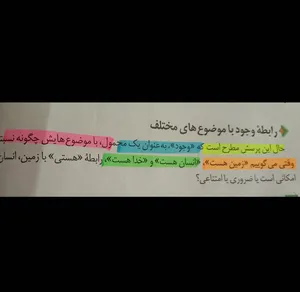 رابطهٔ وجود با موضوع های مختلف
حال این پرسش مطرح است که «وجود»، به عنوان یک محمول، با موضوع هایش چگونه نسبت
وقتی می‌گوییم «زمین هست»، «انسان هست» و «خدا هست»، رابطهٔ «هستی» با زمین، انسان
امکانی است یا ضروری یا امتناعی؟